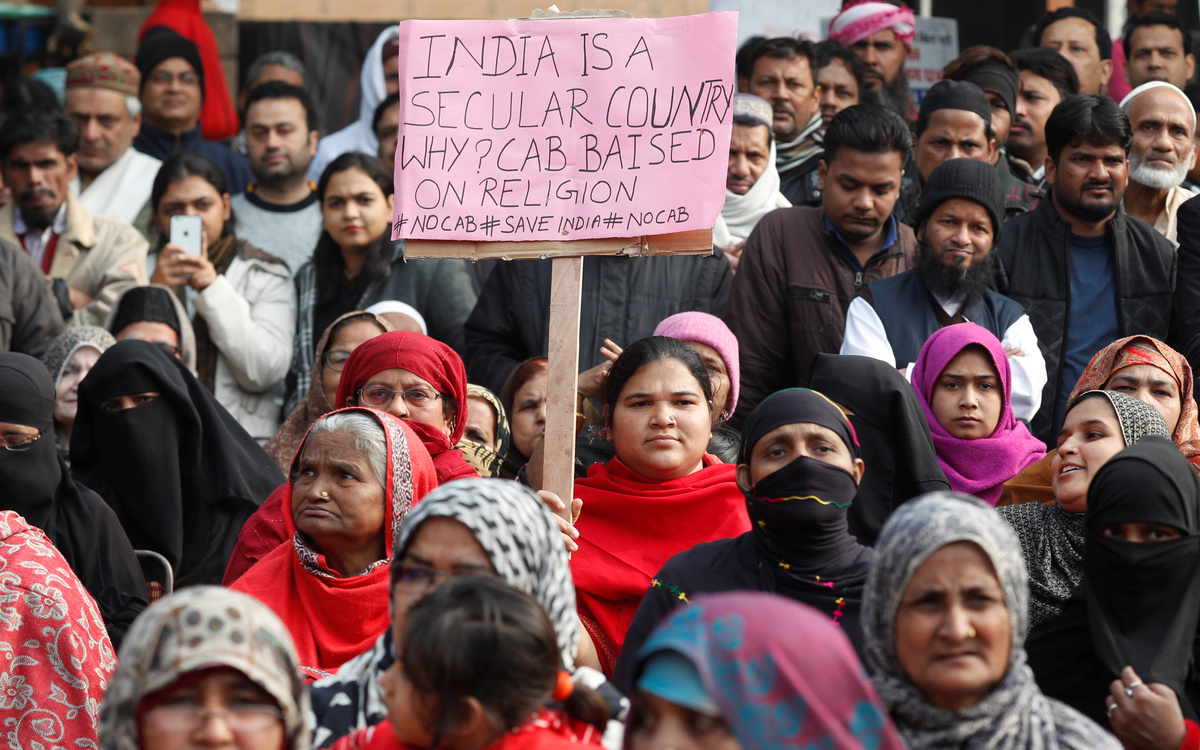 INDIA IS A
SECULAR COUNTRY
WHY? CAB BAISED
ON RELIGION
#NOCAB#SAVE INDIA#NOCAB